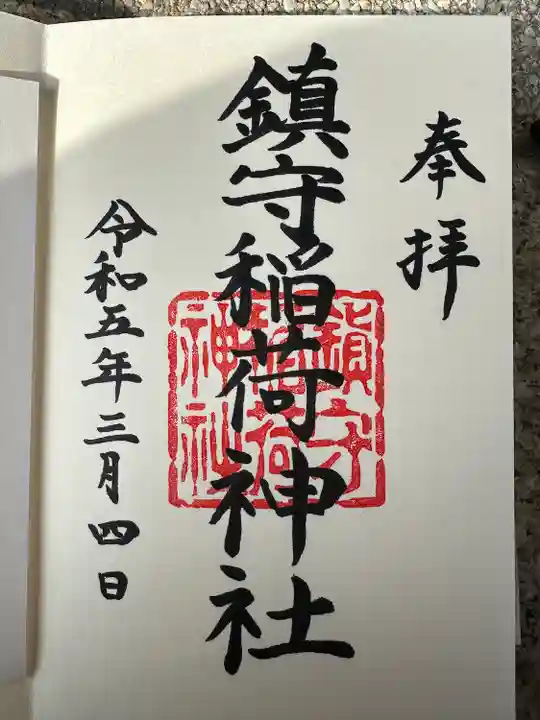 奉拝
鎮守稲荷神社
令和五年三月四日
鎮守
稲荷
神社